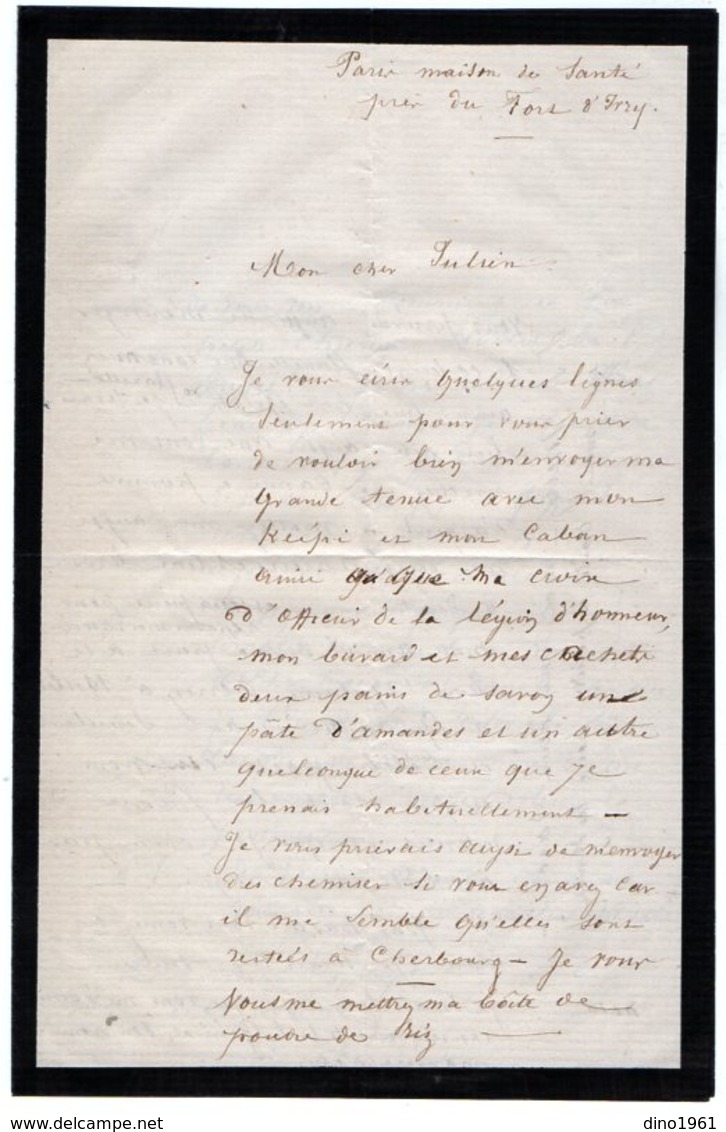 Paris maison de Santé
près du Fort d'Ivry.
Mon cher Julien
Je vous écris quelques lignes
seulement pour vous prier
de vouloir bien m'envoyer ma
grande tenue avec mon
Keépi et mon caban
ainsi que ma croix
d'Officier de la légion d'honneur,
mon buvard et mes cachets
deux pains de savon un
pâte d'amandes et un autre
quelconque de ceux que je
prenais habituellement —
Je vous prierais aussi de m'envoyer
des chemises si vous en avez car
il me semble qu'elles sont
restées à Cherbourg — Je vous
Vous me mettrez ma boîte de
poudre de Riz —
delcampe.net
dino1961